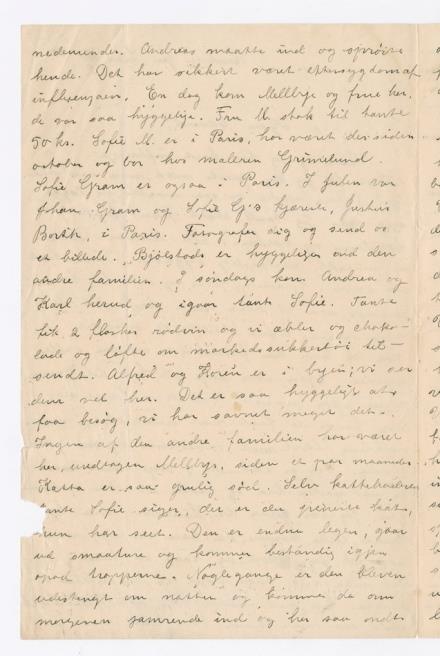 nedenunder. Andreas maatte ind og sprøite
hende. Det har sikkert været eftersygdom af
influenzain. En dag kom Mellbye og frue her,
de var saa hyggelige. Fru M. stak til tante
50 kr. Sofie M. er i Paris, har været der siden
october og bor hos maleren Grimelund.
Sofie Gram er ogsaa i Paris. I Julen var
Johan Gram og Sofie G's kjæreste, Justus
i Paris. Fotografer dig og send os
et billede. Bjölstads er hyggeligere end den
andre familien. I söndags kom Andrea og
Karl herud og igaar tante Sofie. Tante
fik 2 flasker rødvin og vi æbler og choko-
lade og löfte om markedssukkertöi til-
sendt. Alfred og Koren er i byen; vi ser
dem ved her. Det er saa hyggeligt at
faa besøg, vi har savnet meget det.
Ingen af den andre familien har været
her, undtagen Mellbys, siden et par maaneder.
Katta er saa grulig söd. Selv
tante Sofie siger, det er den greieste kat,
hun har seet. Den er endnu legen, gaar
ud smaature og kommer bestandig igjen
opad trapperne. Noglegange er den bleven
udestengt om natten og kommer da om
morgenen jamrende ind og har saa ondt